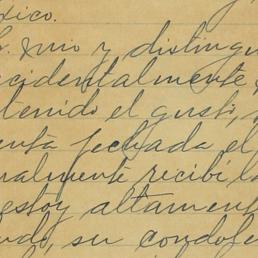 xico.
mio y distingu
cidentalmente
tenido el gusto,
enta fechada el
almente recibí la
estoy altament
ndo, su condole